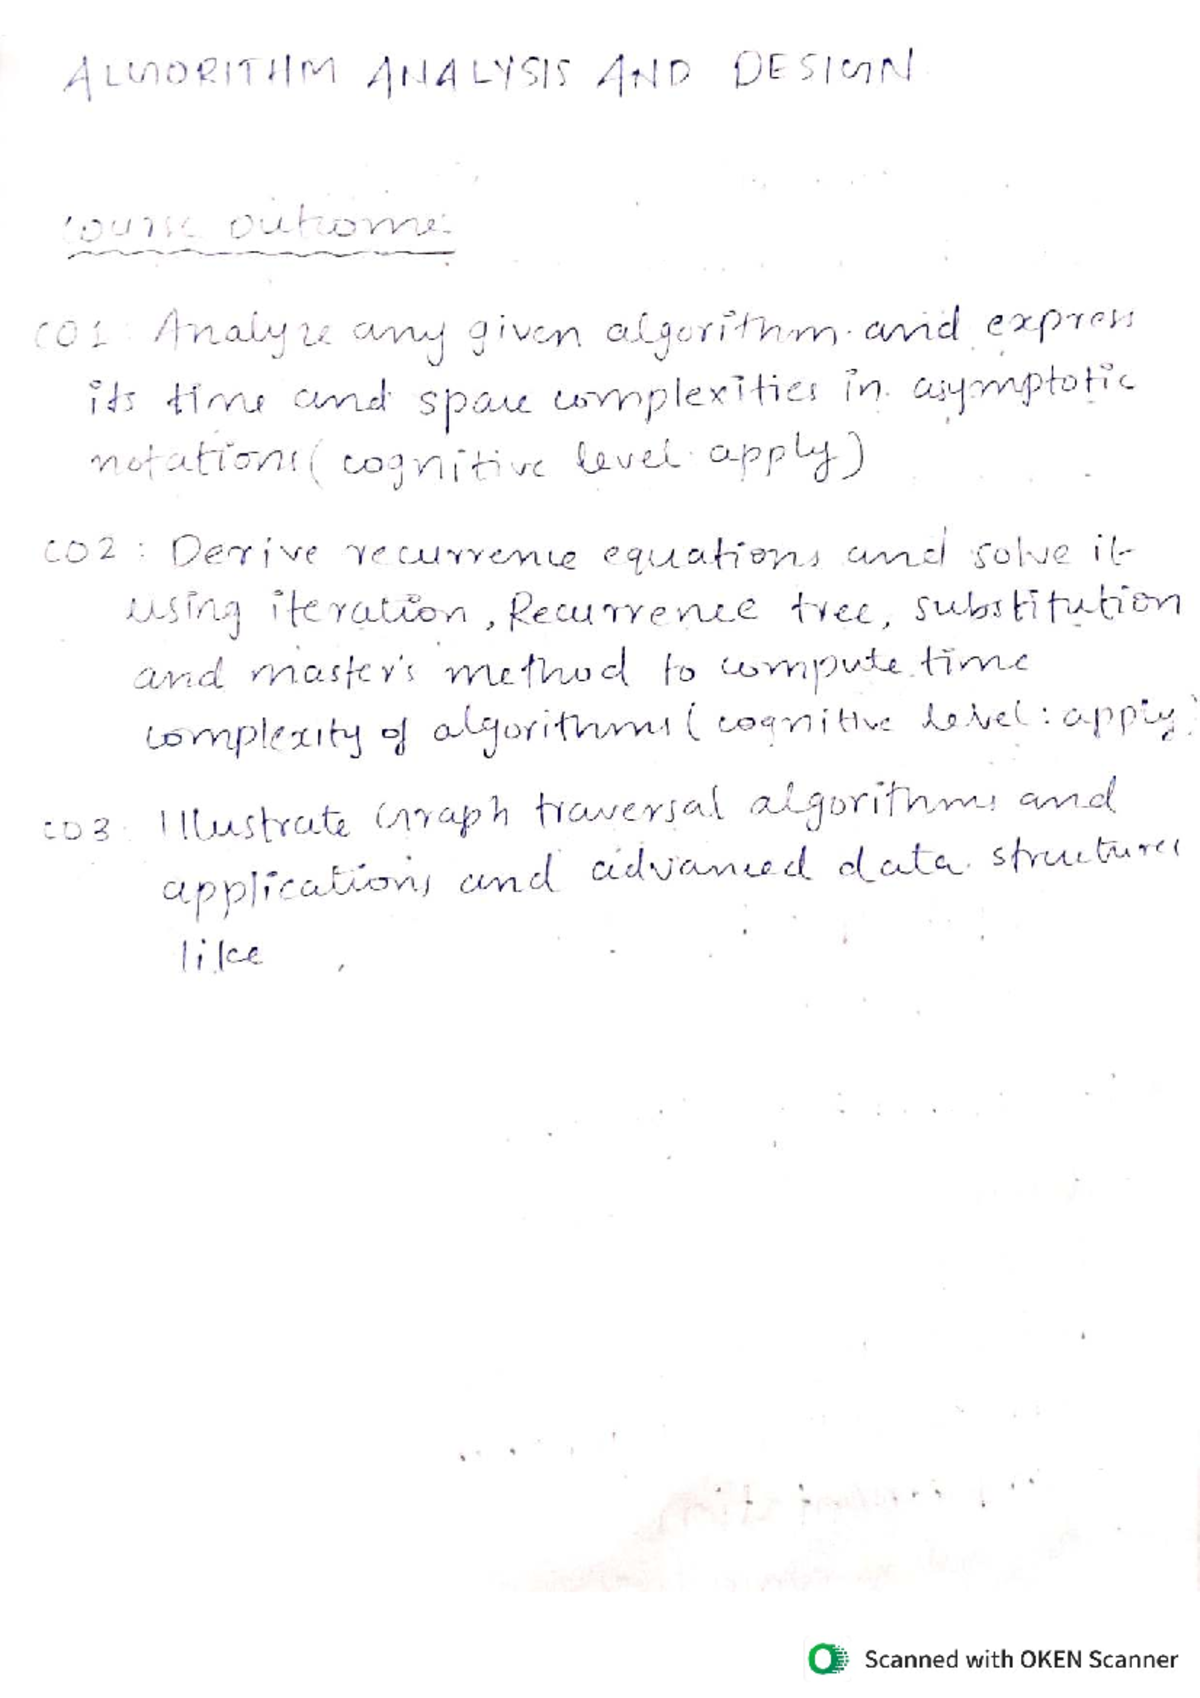 ALGORITHM ANALYSIS AND DESIGN
course outcome:
CO1: Analyze any given algorithm and express
its time and space complexities in asymptotic
notations (cognitive level apply)
CO2: Derive recurrence equations and solve it
using iteration, Recurrence tree, substitution
and master's method to compute time
complexity of algorithms (cognitive level: apply)
CO3: Illustrate Graph traversal algorithms and
applications and advanced data structures
like ,
Scanned with OKEN Scanner